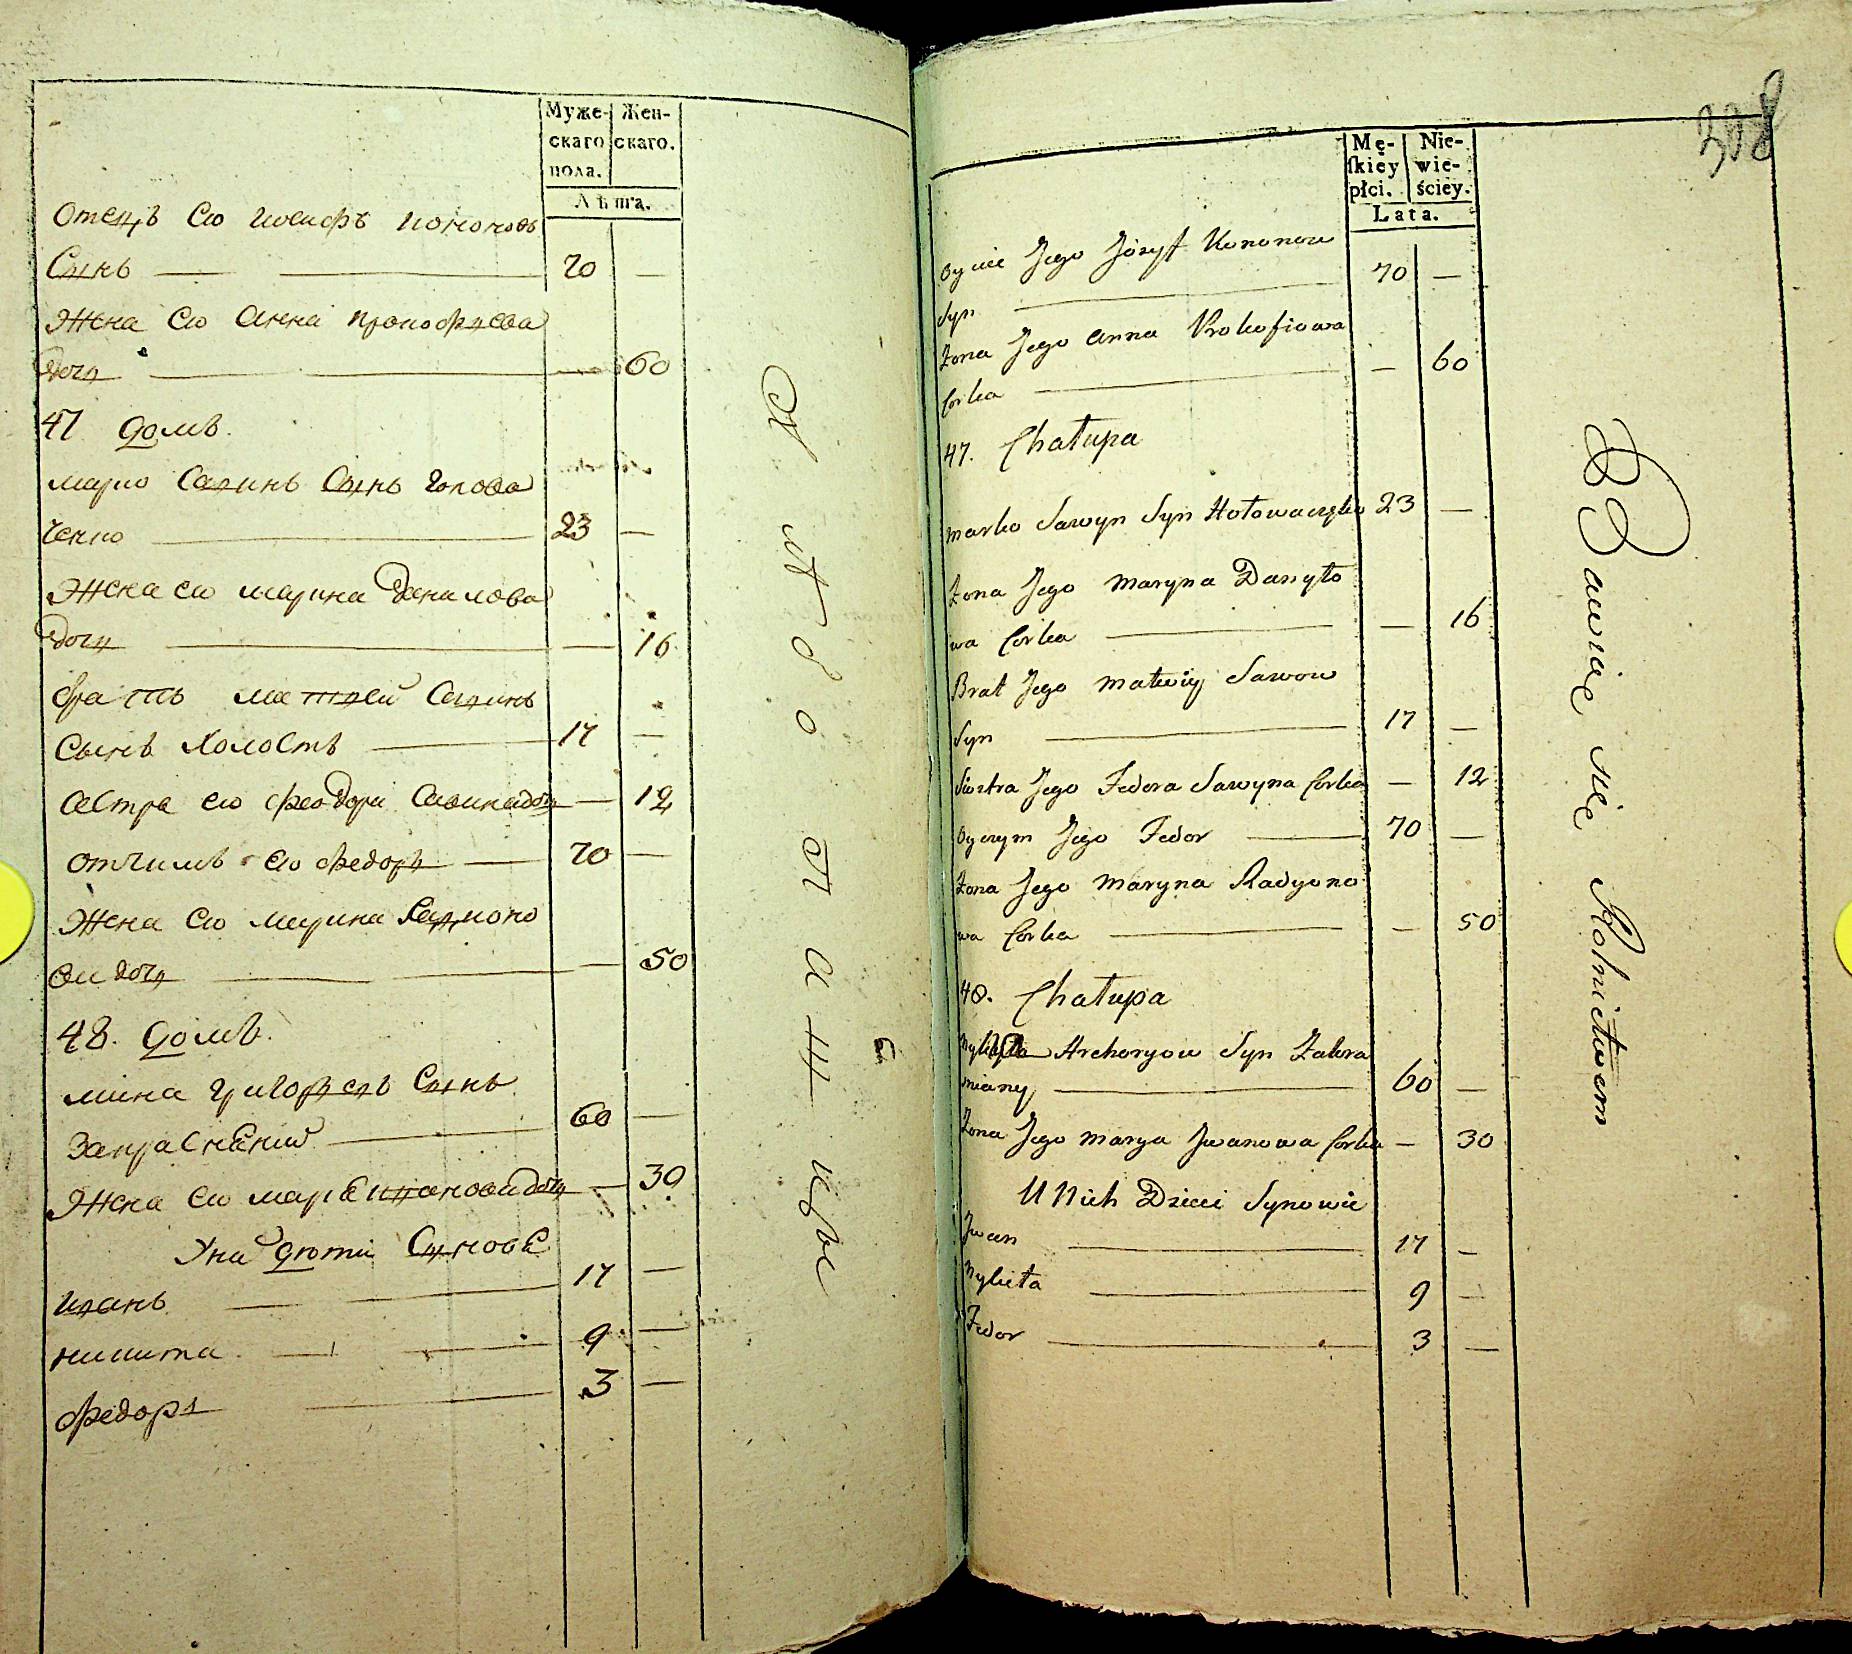 Муже-
скаго
пола.
Жен-
скаго.
Лѣта.
Отецъ Его Иосифъ Кононовъ
Сынъ — 70 —
Жена Его Анна Прокофьева
дочь — — 60
47 домъ.
Марко Савинъ Сынъ Голова
ченко — 23 —
Жена его Марина Данилова
дочь — — 16
братъ Матвей Савинъ
Сынъ холостъ — 17 —
Сестра его Феодора Савина дочь — 12
отчимъ его Федоръ — 70 —
Жена Его Марина Радионо
ва дочь — — 50
48. домъ.
Мина Григорьевъ Сынъ
— 60 —
Жена Его Марья Иванова дочь — 30
У них дети Сынове
Иванъ — 17 —
Никита — 9 —
Федоръ — 3 —
308
Mę-
ſkiey
płci.
Nie-
wie-
ściey.
Lata.
Oyciec Jego Józyf Kononow
Syn — 70 —
Żona Jego Anna Prokofiowa
Corka — — 60
47. Chałupa
Marko Sawyn Syn Hołowaczęko 23 —
Żona Jego Maryna Danyło
wa Corka — — 16
Brat Jego Matwiy Sawow
Syn — 17 —
Siostra Jego Fedora Sawyna Corka — 12
Oyczym Jego Fedor — 70 —
Żona Jego Maryna Radyono
wa Corka — — 50
48. Chałupa
Hrehoryow Syn Zakra
śniany — 60 —
Żona Jego Marya Jwanowa Corka — 30
U Nich Dzieci Synowie
Jwan — 17 —
Mykieta — 9 —
Fedor — 3 —
Bawią się Rolnictwem